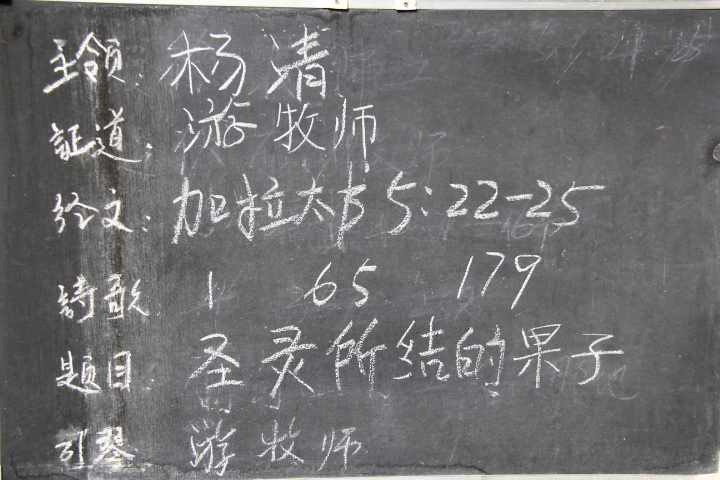 主领：杨清
証道：游牧师
经文：加拉太书5:22-25
詩歌 1 65 179
题目 圣灵所结的果子
引琴 游牧师